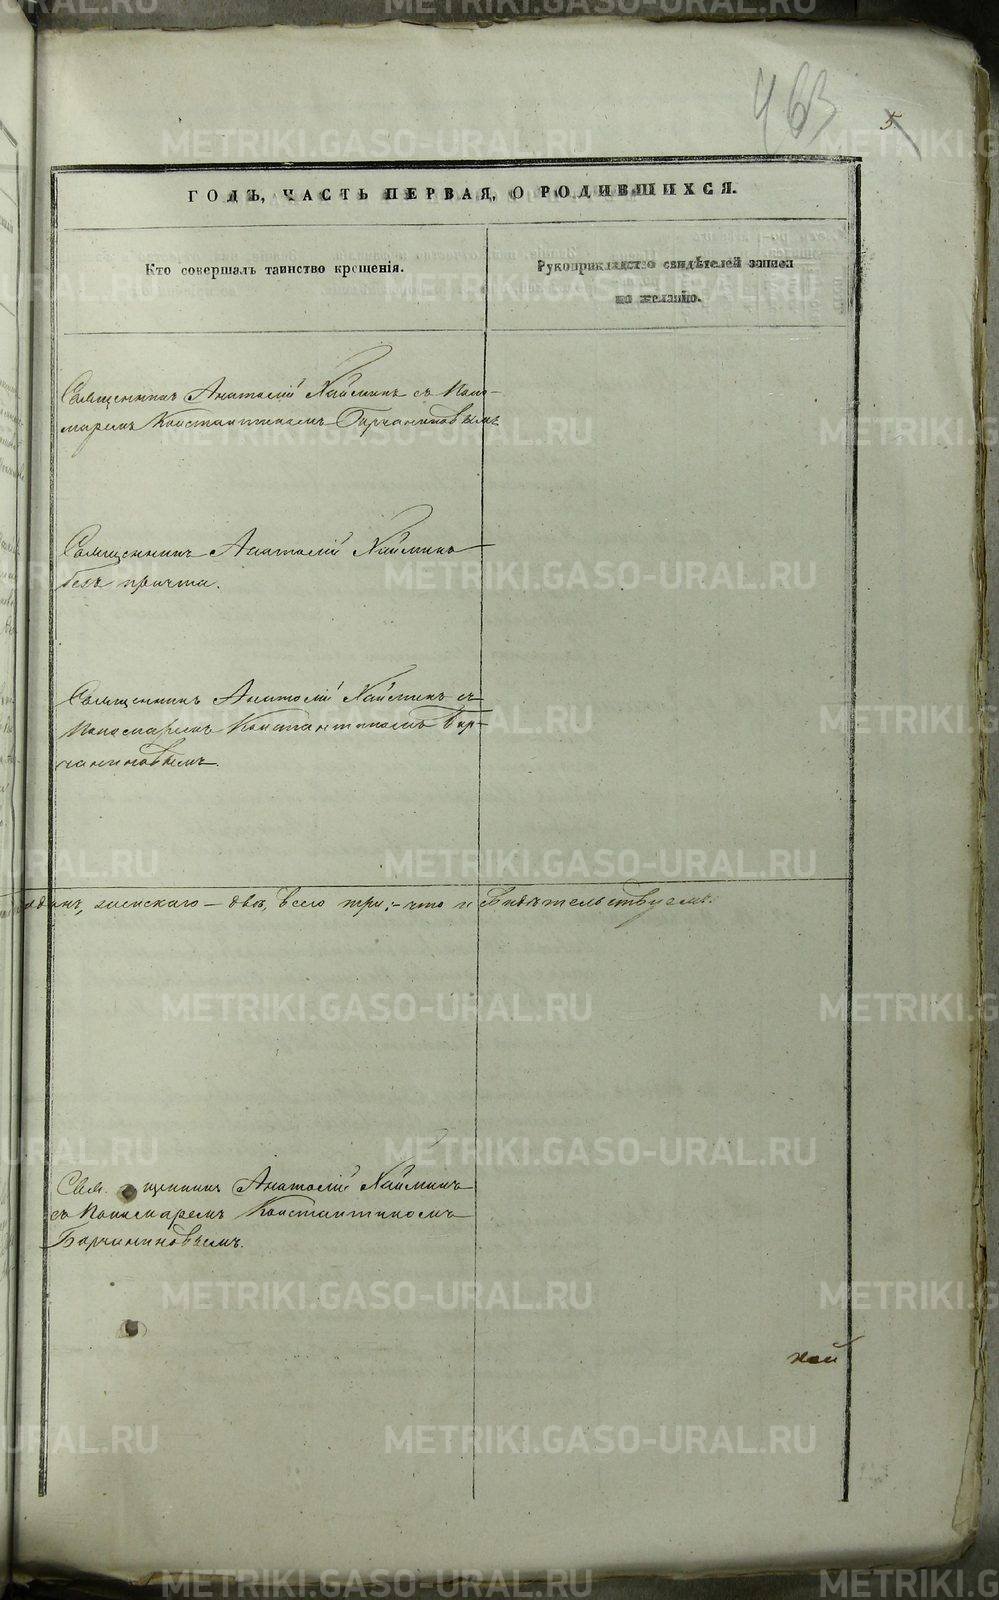 463
5
ГОДЪ, ЧАСТЬ ПЕРВАЯ, О РОДИВШИХСЯ.
Кто совершалъ таинство крещенія.
Рукоприкладство свидѣтелей записи
по желанію.
Священникъ Анатолій Наймикъ съ Поно-
маремъ Константиномъ Барчаниновымъ
Священникъ Анатолій Наймикъ
безъ причта.
Священникъ Анатолій Наймикъ съ
Пономаремъ Константиномъ Бар-
чаниновымъ.
одинъ, женскаго – два, всего три; – что и свидѣтельствуемъ.
Свя щенникъ Анатолій Наймикъ
съ Пономаремъ Константиномъ
Барчаниновымъ.
METRIKI.GASO-URAL.RU